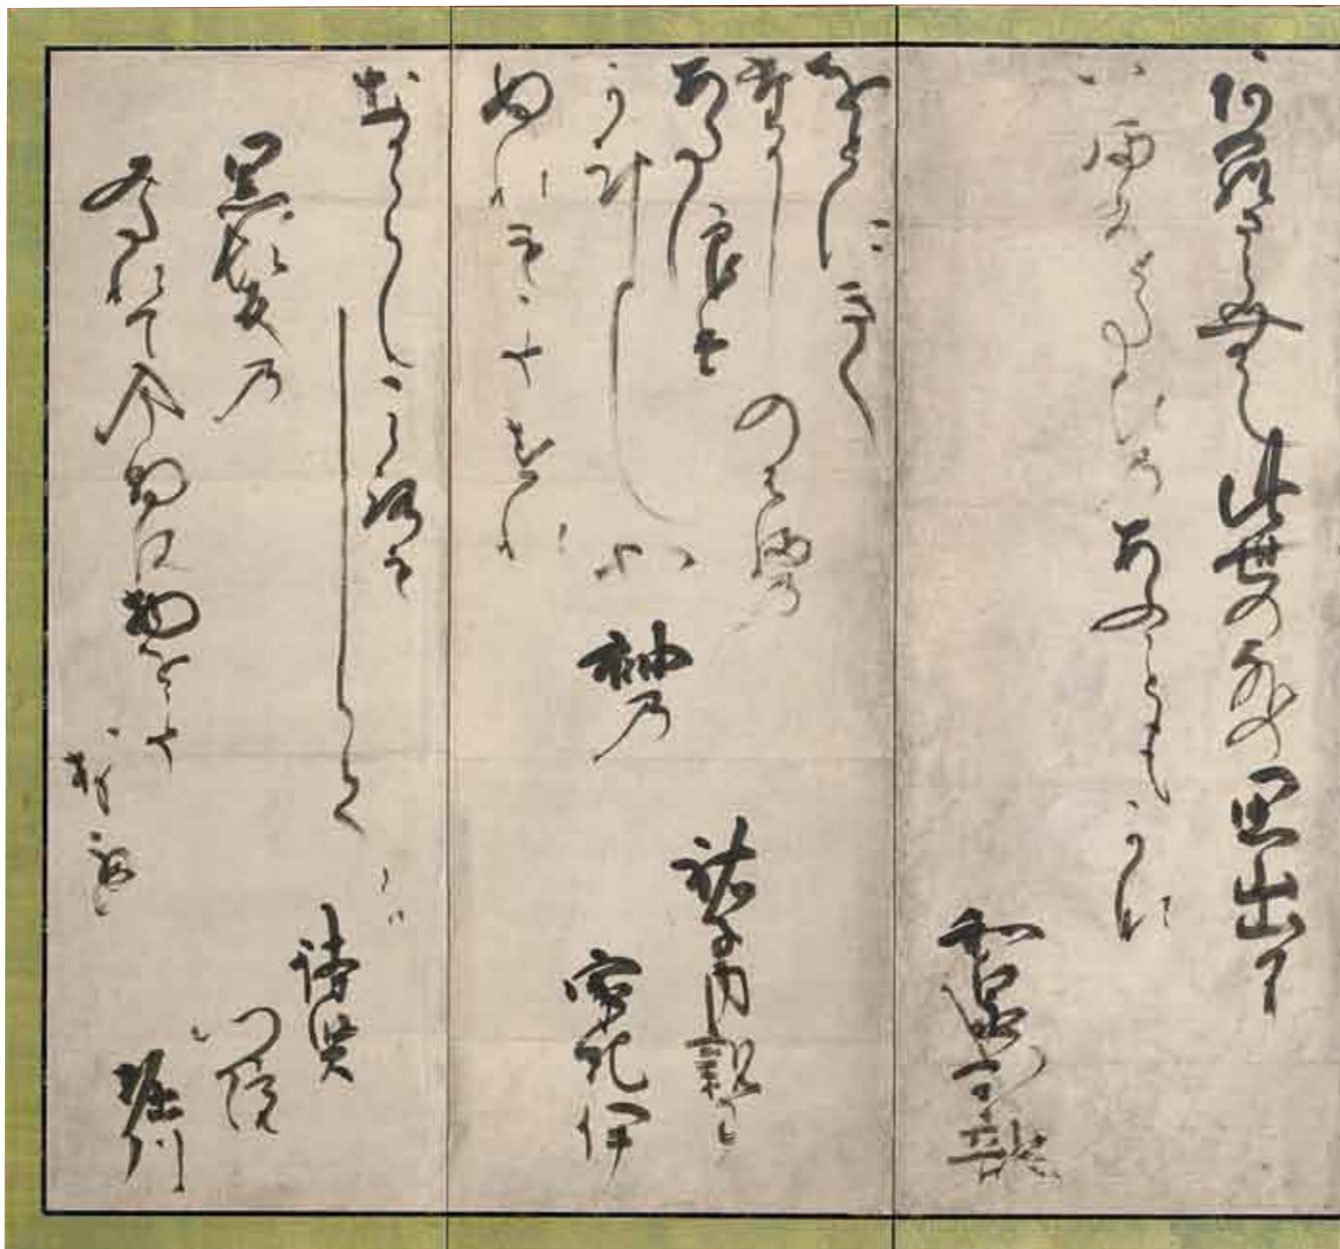 あらさらむ此世の外の思出に
いまひとたひのあふこともかな
和泉式部
をとにきく
高しのはまの
あた浪は
かけしや袖の
ぬれもこそすれ
祐子内親王
家紀伊
なかからむこころも
しらす
黒髪乃
みたれて今朝は物をこそ
おもへ
待賢
門院
堀川